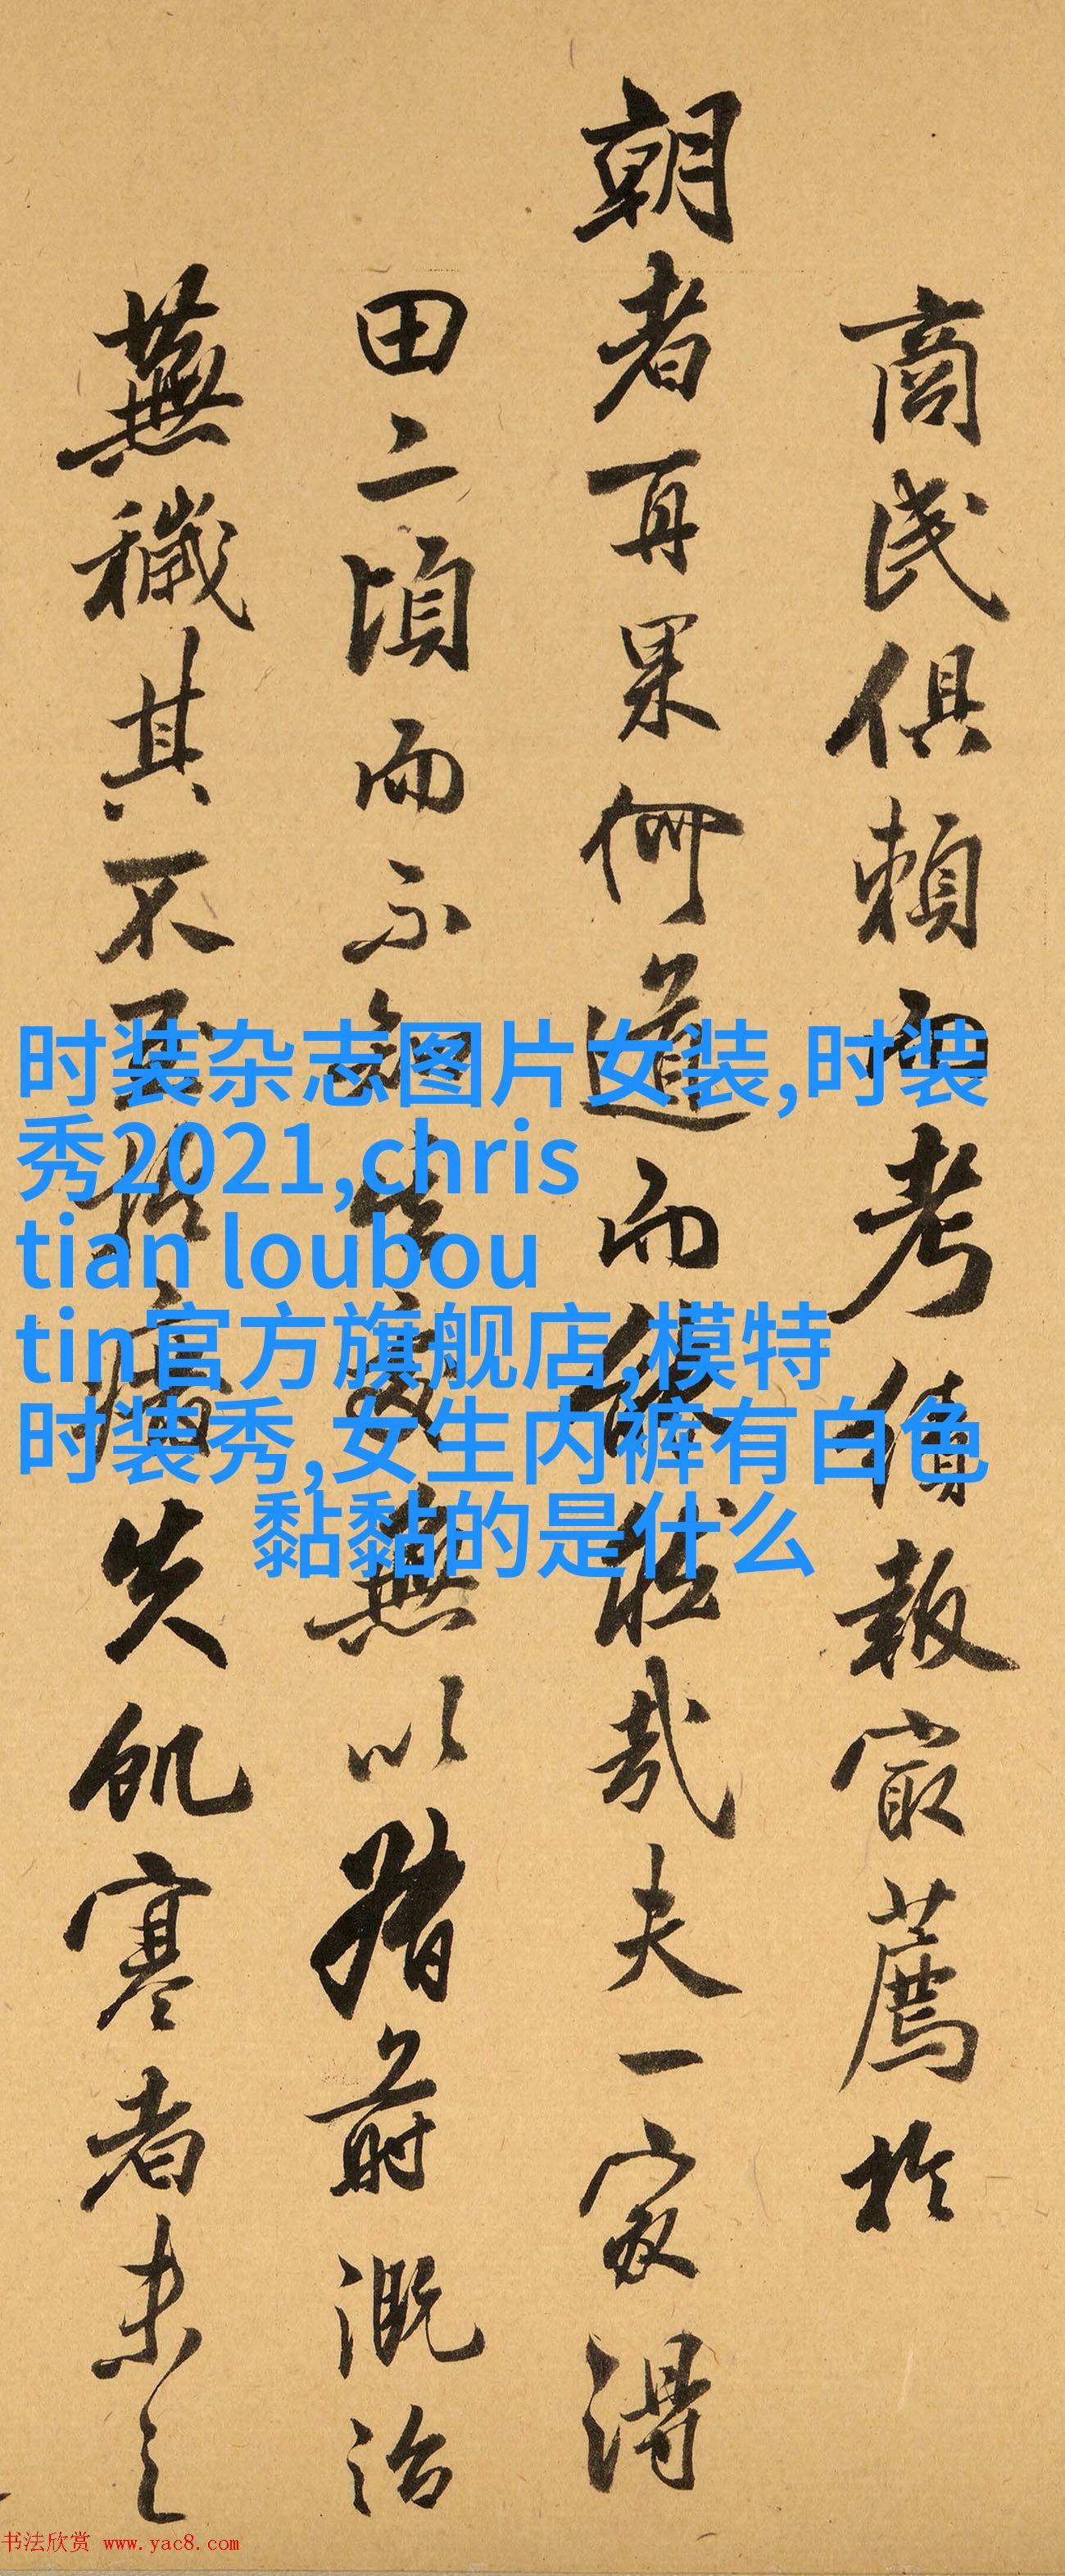 商民俱賴而考績報最薦於
朝者再果何道而能然哉夫一家得
田二頃而不知生處無以稽前溉治
蕪穢其不至於廢失飢寒者未之
时装杂志图片女装,时装
秀2021,chris
tian loubou
tin官方旗舰店,模特
时装秀,女生内裤有白色
黏黏的是什么
书法欣赏 www.yac8.com